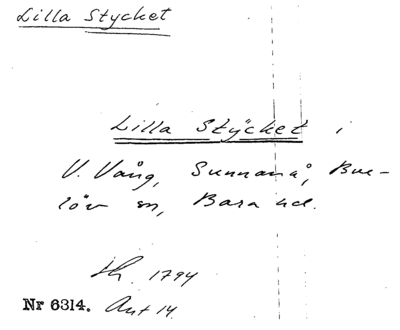 Lilla Stycket
Lilla Stÿcket i
V. Vång, Sunnanå, Bur-
löv sn, Bara hd.
Sk. 1794
Nr 6314. Akt 14.